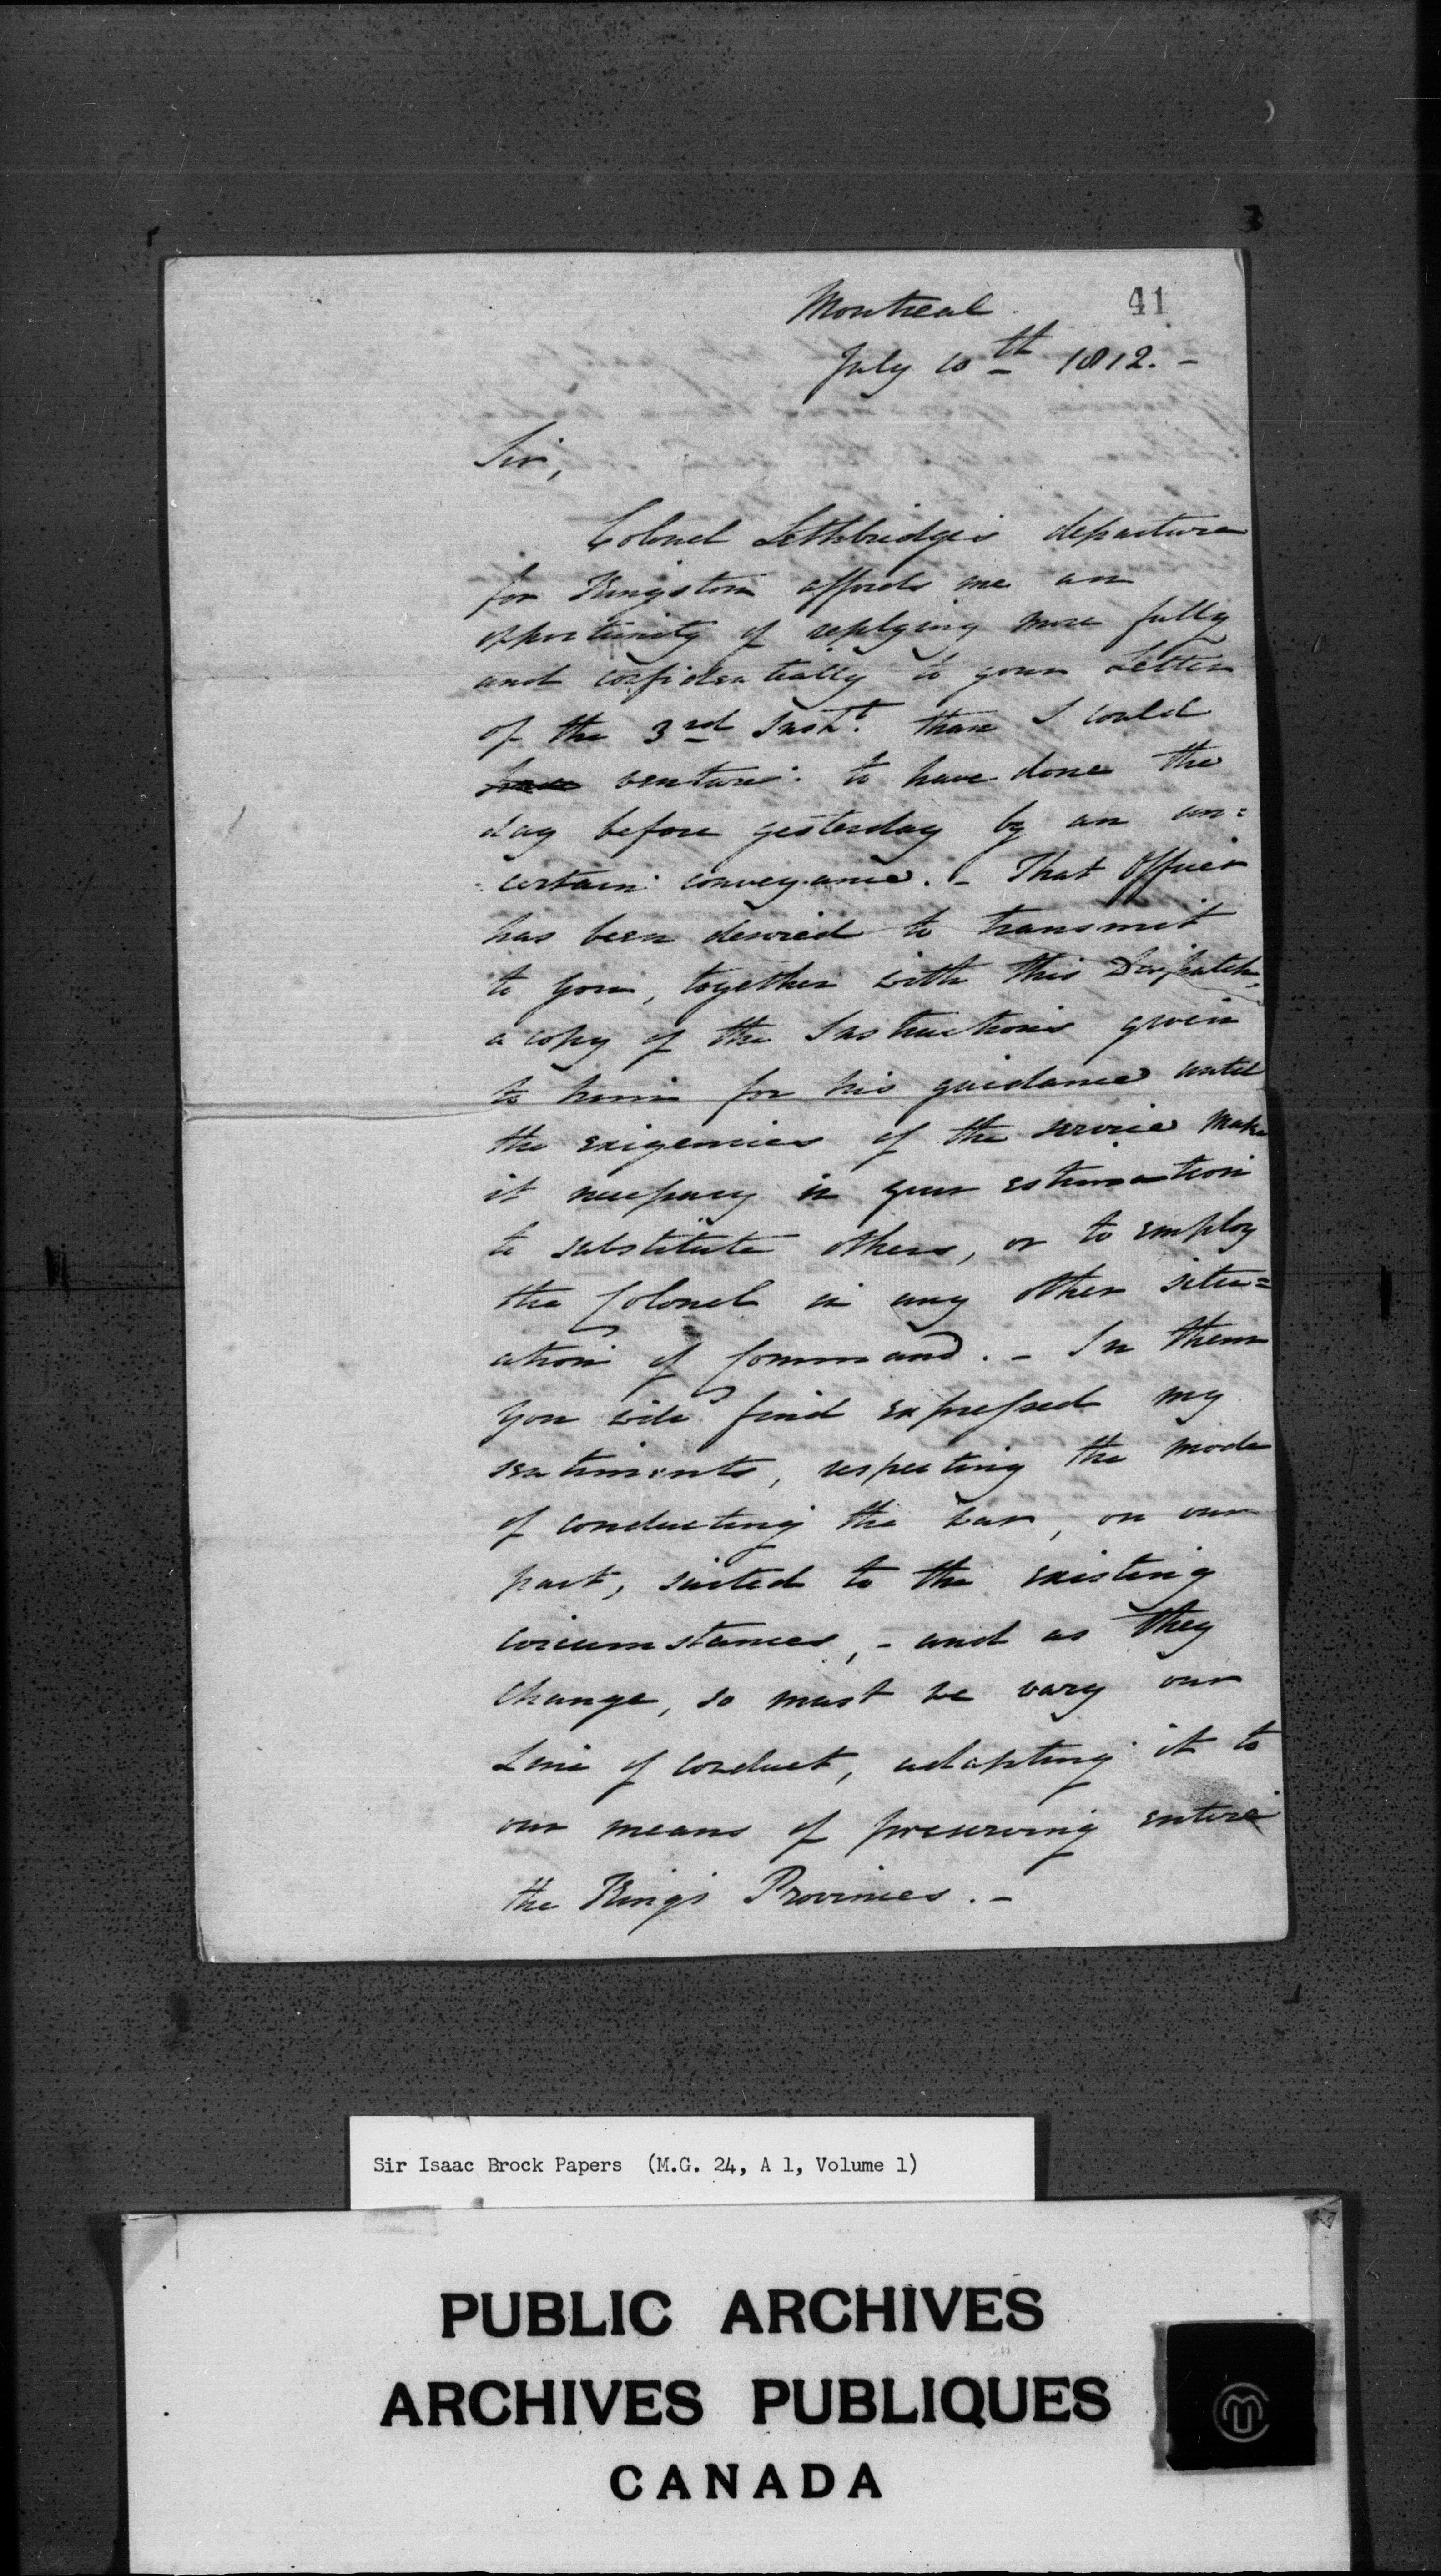 41
Montreal
July 10th 1812. -
Sir,
Colonel Lethbridge's departure
for Kingston affords me an
opportunity of replying more fully
and confidentially to your Letter
of the 3rd Inst. than I could
venture to have done the
day before yesterday by an un=
certain conveyance. - That Officer
has been desired to transmit
to you, together with this Dispatch,
a copy of the Instructions given
to him for his guidance until
the exigencies of the service make
it necessary in your estimation
to substitute others, or to employ
the Colonel in any other situ=
ation of Command. - In them
you will find expressed my
sentiments, respecting the mode
of conducting the War, on our
part, suited to the existing
circumstances, - and as they
change, so must we vary our
Line of conduct, adapting it to
our means of preserving entire
the King's Provinces. -
Sir Isaac Brock Papers (M.G. 24, A 1, Volume 1)
PUBLIC ARCHIVES
ARCHIVES PUBLIQUES
CANADA